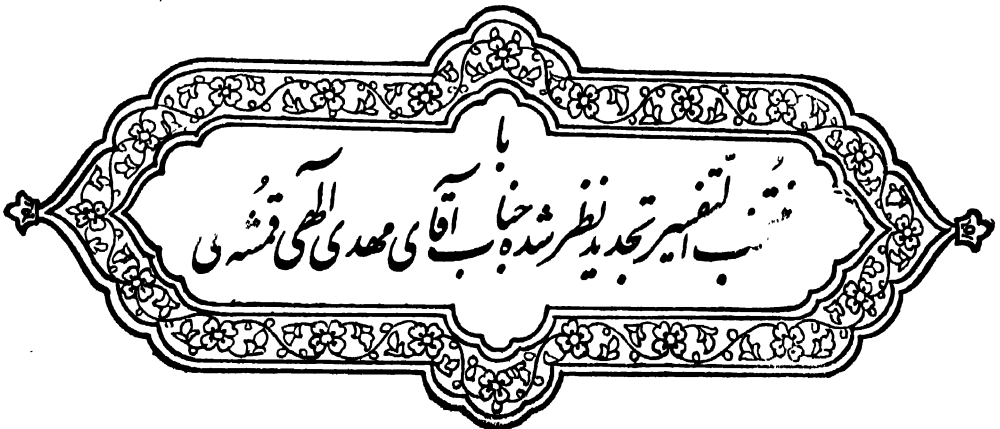 با
منتخب التفسیر تجدید نظر شده جناب آقای مهدی الهی قمشه ی